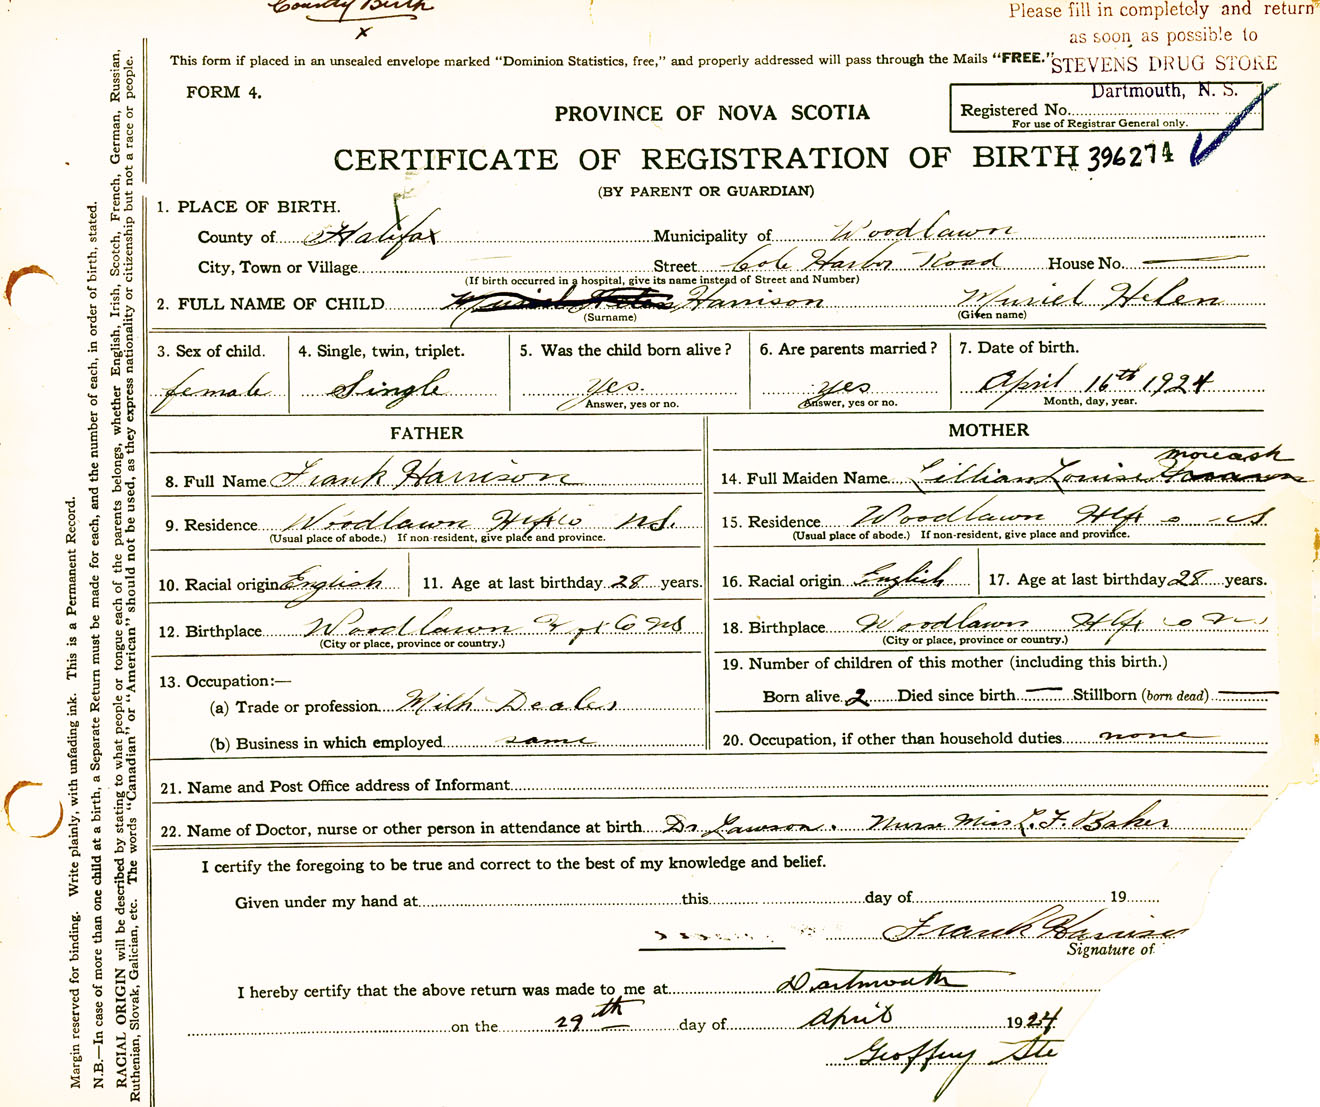 County Birth
x
Please fill in completely and return
as soon as possible to
STEVENS DRUG STORE
Dartmouth, N. S.
This form if placed in an unsealed envelope marked "Dominion Statistics, free," and properly addressed will pass through the Mails "FREE."
FORM 4.
PROVINCE OF NOVA SCOTIA
Registered No.
For use of Registrar General only.
CERTIFICATE OF REGISTRATION OF BIRTH 396274
(BY PARENT OR GUARDIAN)
1. PLACE OF BIRTH.
County of Halifax Municipality of Woodlawn
City, Town or Village Street Cole Harbor Road House No. —
(If birth occurred in a hospital, give its name instead of Street and Number)
2. FULL NAME OF CHILD Muriel Helen Harrison Muriel Helen
(Surname) (Given name)
3. Sex of child. 4. Single, twin, triplet. 5. Was the child born alive? 6. Are parents married? 7. Date of birth.
female Single yes. yes April 16th 1924
Answer, yes or no. Answer, yes or no. Month, day, year.
FATHER MOTHER
8. Full Name Frank Harrison
9. Residence Woodlawn Hfx Co N.S.
(Usual place of abode.) If non-resident, give place and province.
10. Racial origin English 11. Age at last birthday 28 years.
12. Birthplace Woodlawn Hfx Co NS
(City or place, province or country.)
13. Occupation:—
(a) Trade or profession Milk Dealer
(b) Business in which employed same
14. Full Maiden Name Lillian Louise moreash
15. Residence Woodlawn Hlfx
(Usual place of abode.) If non-resident, give place and province.
16. Racial origin English 17. Age at last birthday 28 years.
18. Birthplace Woodlawn Hlfx
(City or place, province or country.)
19. Number of children of this mother (including this birth.)
Born alive 2 Died since birth — Stillborn (born dead) —
20. Occupation, if other than household duties none
21. Name and Post Office address of Informant
22. Name of Doctor, nurse or other person in attendance at birth Dr Lawson. Nurse Miss L. F. Baker
I certify the foregoing to be true and correct to the best of my knowledge and belief.
Given under my hand at this day of 19
Frank Harriso
Signature of
I hereby certify that the above return was made to me at Dartmouth
on the 29th day of April 1924
Geoffrey Ste
Margin reserved for binding. Write plainly, with unfading ink. This is a Permanent Record.
N.B.—In case of more than one child at a birth, a Separate Return must be made for each, and the number of each, in order of birth, stated.
RACIAL ORIGIN will be described by stating to what people or tongue each of the parents belongs, whether English, Irish, Scotch, French, German, Russian,
Ruthenian, Slovak, Galician, etc. The words "Canadian" or "American" should not be used, as they express nationality or citizenship but not a race or people.